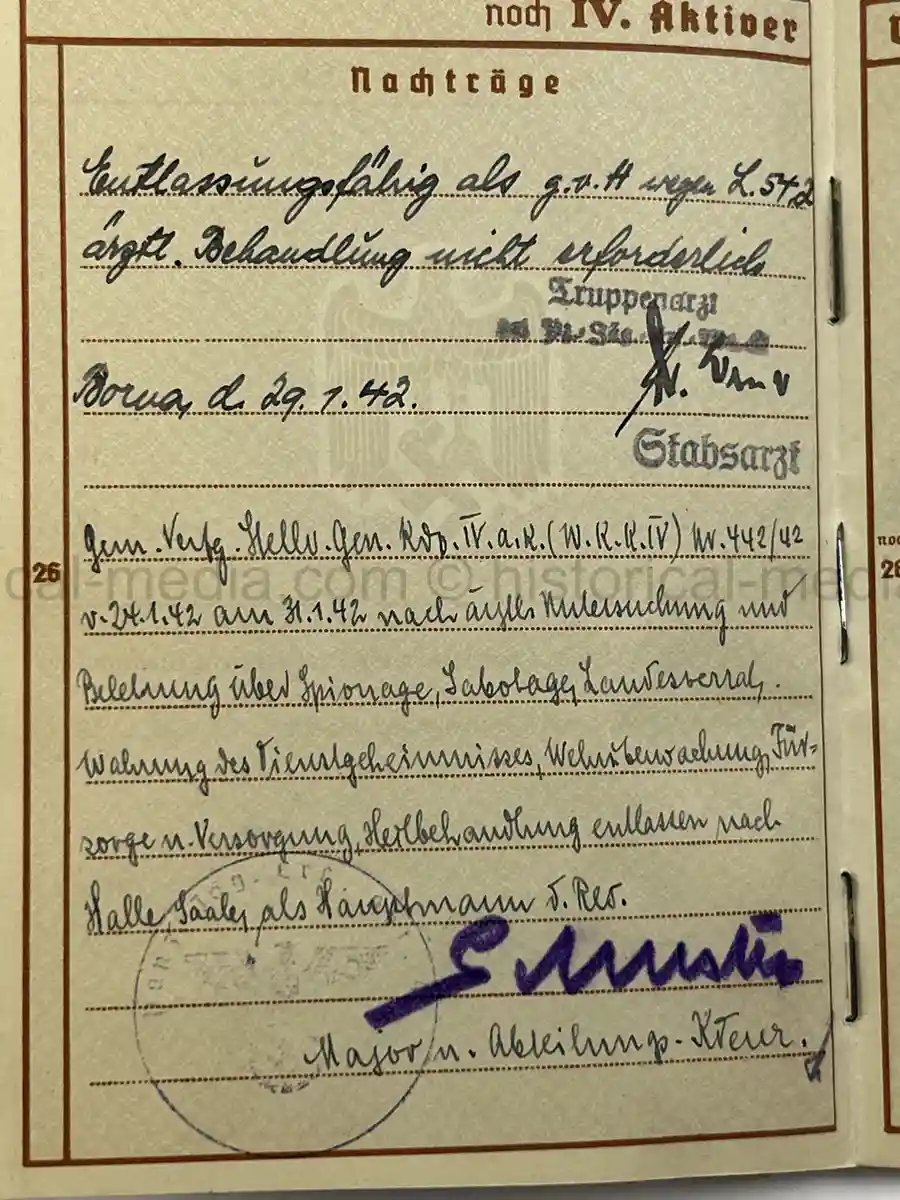 noch IV. Aktiver
Nachträge
Entlassungsfähig als g.v.H wegen L.54,2
ärztl. Behandlung nicht erforderlich
Truppenarzt
Borna, d. 29.1.42.
Stabsarzt
26
Gem. Verfg. Stellv. Gen. Kdo. IV. a.K. (W.K.K. IV) Nr. 442/42
cal-media.com © historical-med
v. 24.1.42 am 31.1.42 nach ärztl. Untersuchung und
Belehrung über Spionage, Sabotage, Landesverrat,
Wahrung des Dienstgeheimnisses, Wehrüberwachung, Für=
sorge u. Versorgung, Heilbehandlung entlassen nach
Halle, Saale, als Hauptmann d. Res.
Major u. Abteilungs-Kdeur.